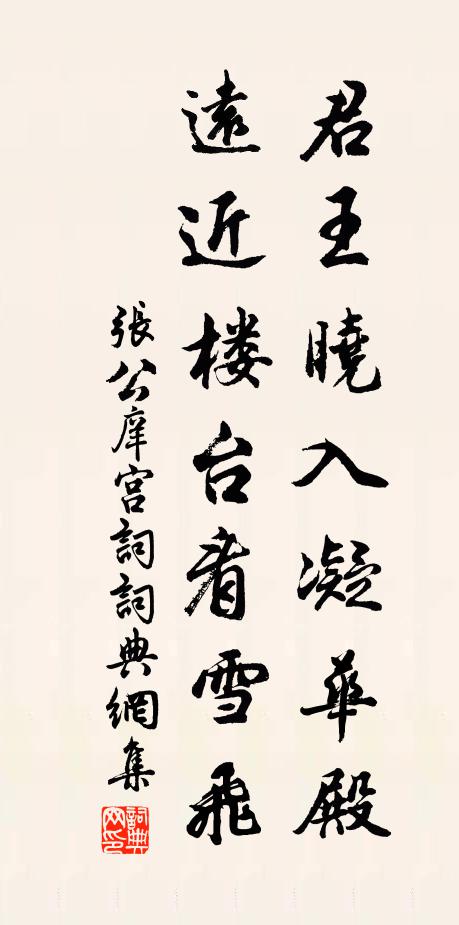 君王曉入凝華殿
遠近楼台看雪飛
張公庠宮詞詞典網集
詞典網印